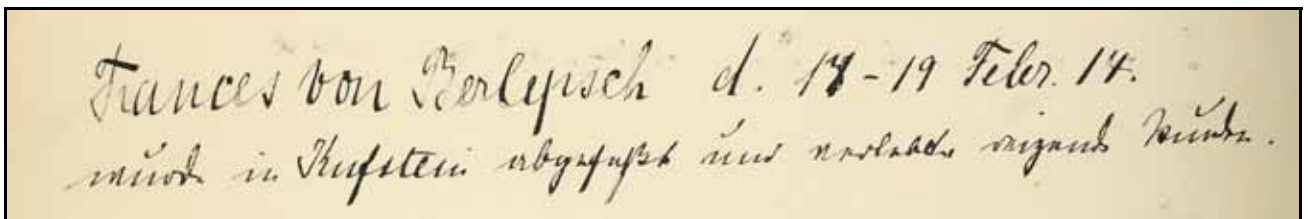 Frances von Berlepsch d. 17-19 Febr. 14.
wurde in Kufstein abgefaßt und verlebte reizende Stunden.